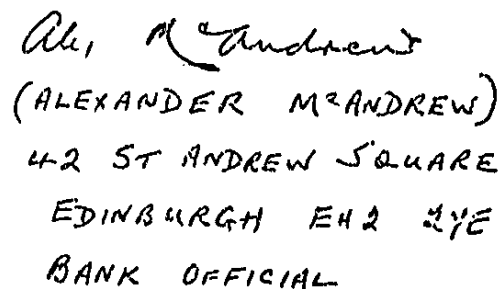 Alex. McAndrew
(ALEXANDER McANDREW)
42 ST ANDREW SQUARE
EDINBURGH EH2 2YE
BANK OFFICIAL